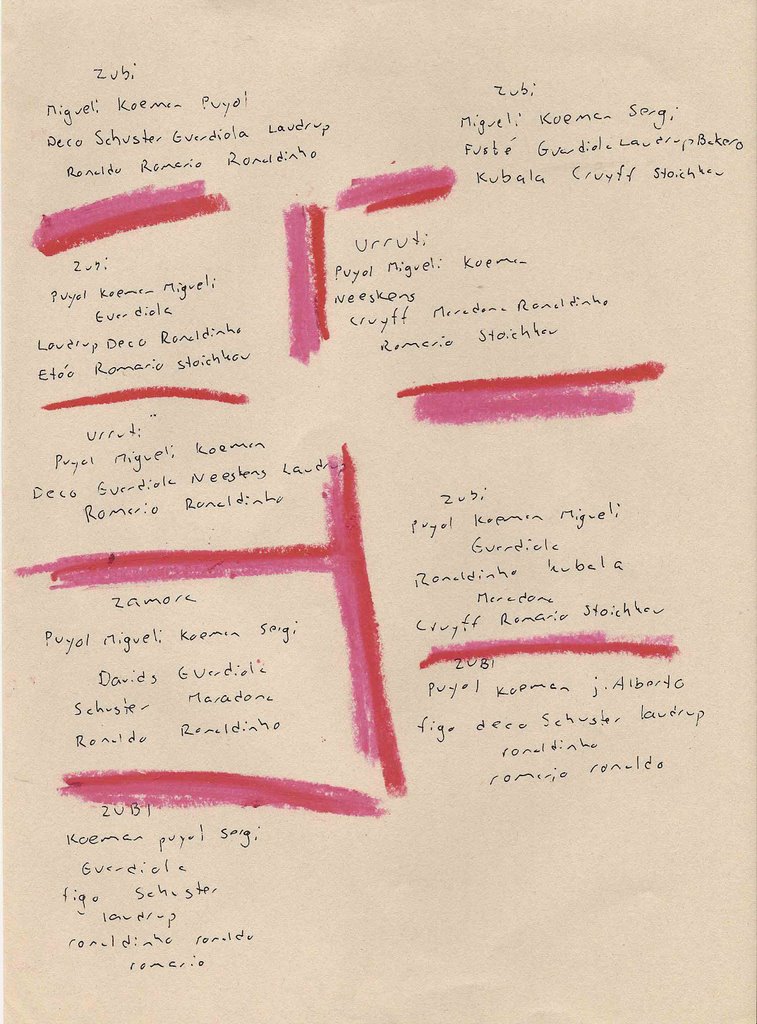 Zubi
Migueli Koeman Puyol
Deco Schuster Guardiola Laudrup
Ronaldo Romario Ronaldinho
Zubi
Migueli Koeman Sergi
Fusté Guardiola Laudrup Bakero
Kubala Cruyff Stoichkov
Zubi
Puyol Koeman Migueli
Guardiola
Laudrup Deco Ronaldinho
Etóo Romario Stoichkov
Urruti
Puyol Migueli Koeman
Neeskens
Cruyff Maradona Ronaldinho
Romario Stoichkov
Urruti
Puyol Migueli Koeman
Deco Guardiola Neeskens Laudrup
Romario Ronaldinho
Zubi
Puyol Koeman Migueli
Guardiola
Ronaldinho Kubala
Maradona
Cruyff Romario Stoichkov
Zamora
Puyol Migueli Koeman Sergi
Davids Guardiola
Schuster Maradona
Ronaldo Ronaldinho
ZUBI
Puyol Koeman j. Alberto
figo deco Schuster laudrup
ronaldinho
romario ronaldo
ZUBI
Koeman puyol Sergi
Guardiola
figo Schuster
laudrup
ronaldinho ronaldo
romario